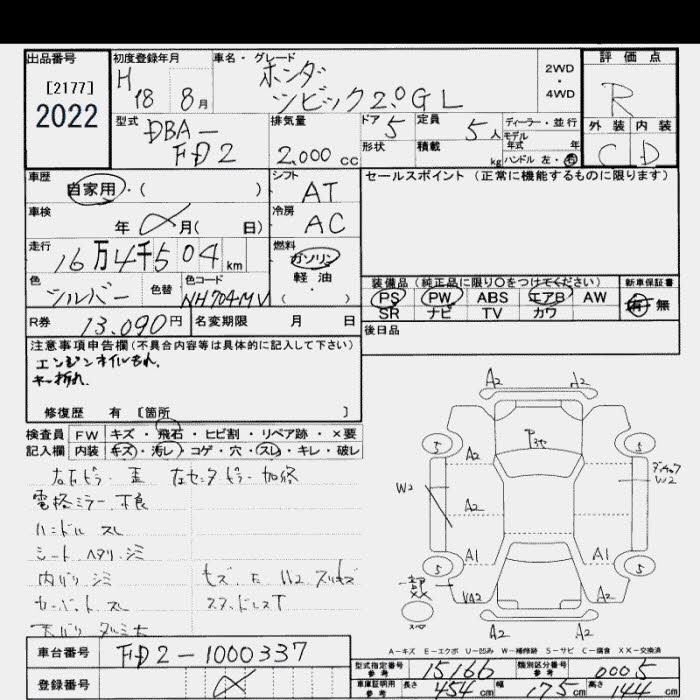 出品番号
[2177]
2022
初度登録年月
H 18 8月
車名・グレード
ホンダ
シビック2.0GL
2WD
・
4WD
評価点
R
外装 内装
C D
型式
DBA-
FD2
排気量
2,000 cc
ドア 5
定員 5人
形状
積載 kg
ディーラー・並行
モデル年式 年
ハンドル 左・右
車歴
自家用・( )
シフト
AT
セールスポイント (正常に機能するものに限ります)
車検
年 月( 日)
冷房
AC
走行
16万4千504 km
燃料
ガソリン
・
軽油
( )
色
シルバー
色替
色コード
NH704MV
装備品 (純正品に限り〇をつけてください)
PS PW ABS エアB AW
SR ナビ TV カワ
新車保証書
有・無
R券 13,090円
名変期限 月 日
後日品
注意事項申告欄(不具合内容等は具体的に記入して下さい)
エンジンオイルもれ、
キー折れ、
修復歴 有 [箇所 ]
検査員 FW キズ・飛石・ヒビ割・リペア跡・×要
記入欄 内装 キズ・汚レ・コゲ・穴・スレ・キレ・破レ
電格ミラー 不良
ハンドル スレ
シート ヘタリ・シミ
内バリ シミ
カーペット スレ
スタッドレスT
A2 A2
P
A2
5 5
W2
W2
A2
A1 A1
5 5
A2
A2 A2
A-キズ E-エクボ U-凹み W-補修跡 S-サビ C-腐食 XX-交換済
車台番号 FD2-1000337
登録番号
型式指定番号 参考 15166
類別区分番号 参考 0005
車庫証明用 参考 長さ 454 cm 幅 175 cm 高さ 144 cm